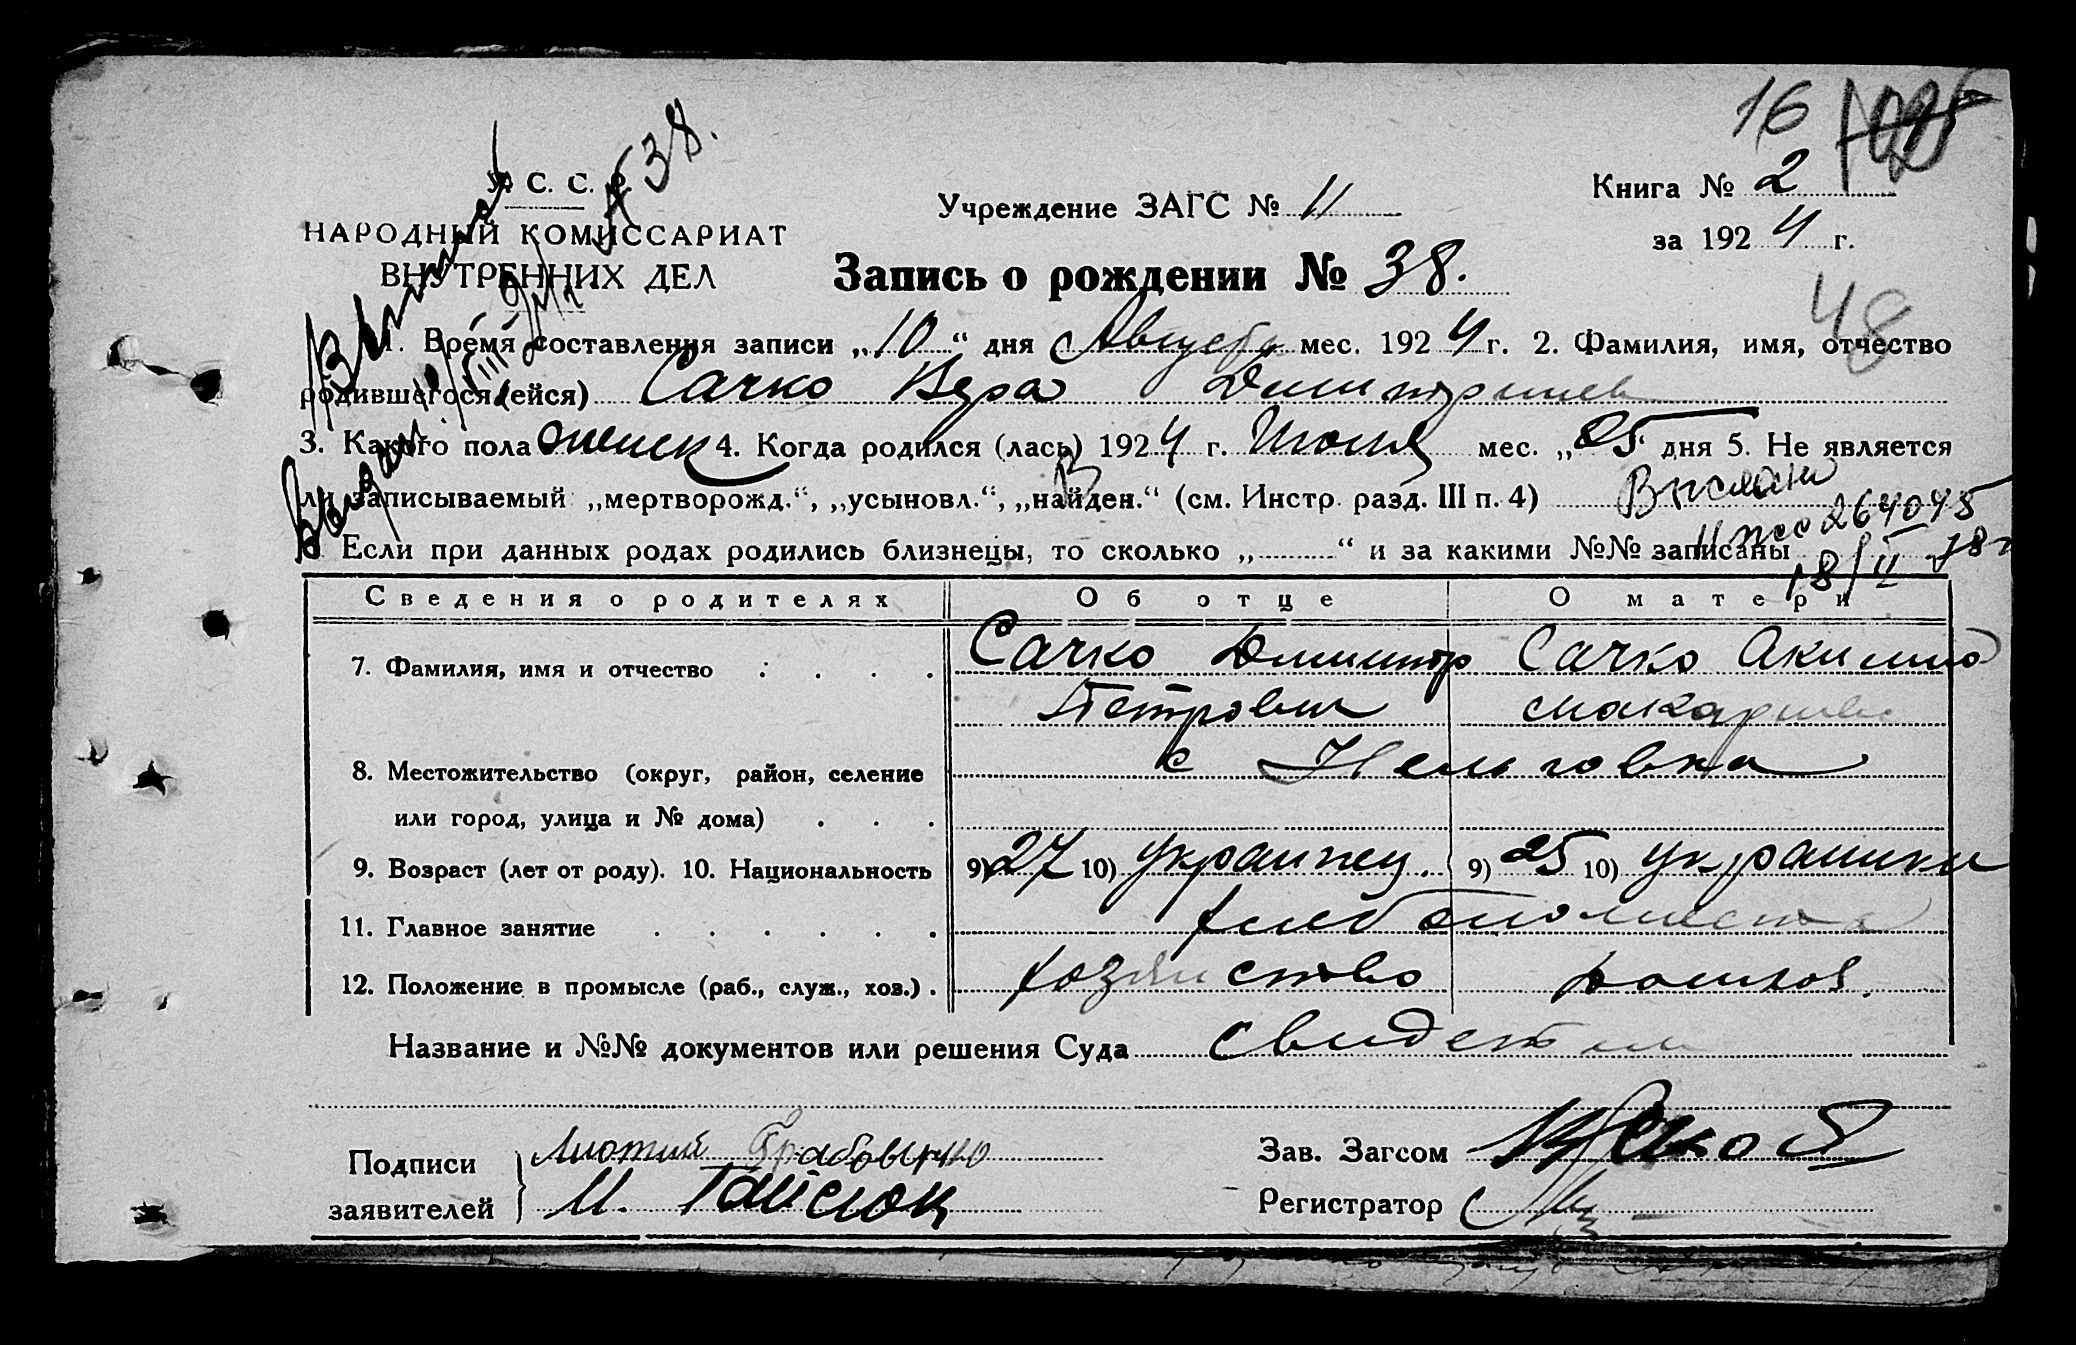 16
У. С. С. Р.
38.
Книга № 2
Учреждение ЗАГС № 11
НАРОДНЫЙ КОМИССАРИАТ
за 1924 г.
ВНУТРЕННИХ ДЕЛ
Запись о рождении № 38.
48
1. Время составления записи „10“ дня Августа мес. 1924 г. 2. Фамилия, имя, отчество
родившегося (ейся) Сачко Вера Димитриев
3. Какого пола женск 4. Когда родился (лась) 1924 г. Июля мес. „25 дня 5. Не является
ли записываемый „мертворожд.“, „усыновл.“, „найден.“ (см. Инстр. разд. III п. 4)
264045
6. Если при данных родах родились близнецы, то сколько „ “ и за какими №№ записаны
18/II
Сведения о родителях Об отце О матери
7. Фамилия, имя и отчество Сачко Димитр Сачко Акилина
Петрович Макариев
8. Местожительство (округ, район, селение с
или город, улица и № дома)
9. Возраст (лет от роду). 10. Национальность 9) 27 10) украинец. 9) 25 10) украинки
11. Главное занятие
12. Положение в промысле (раб., служ., хоз.) хозяйство домхоз.
Название и №№ документов или решения Суда свидетели
Подписи Грабовенко Зав. Загсом
заявителей И. Гайсюк Регистратор